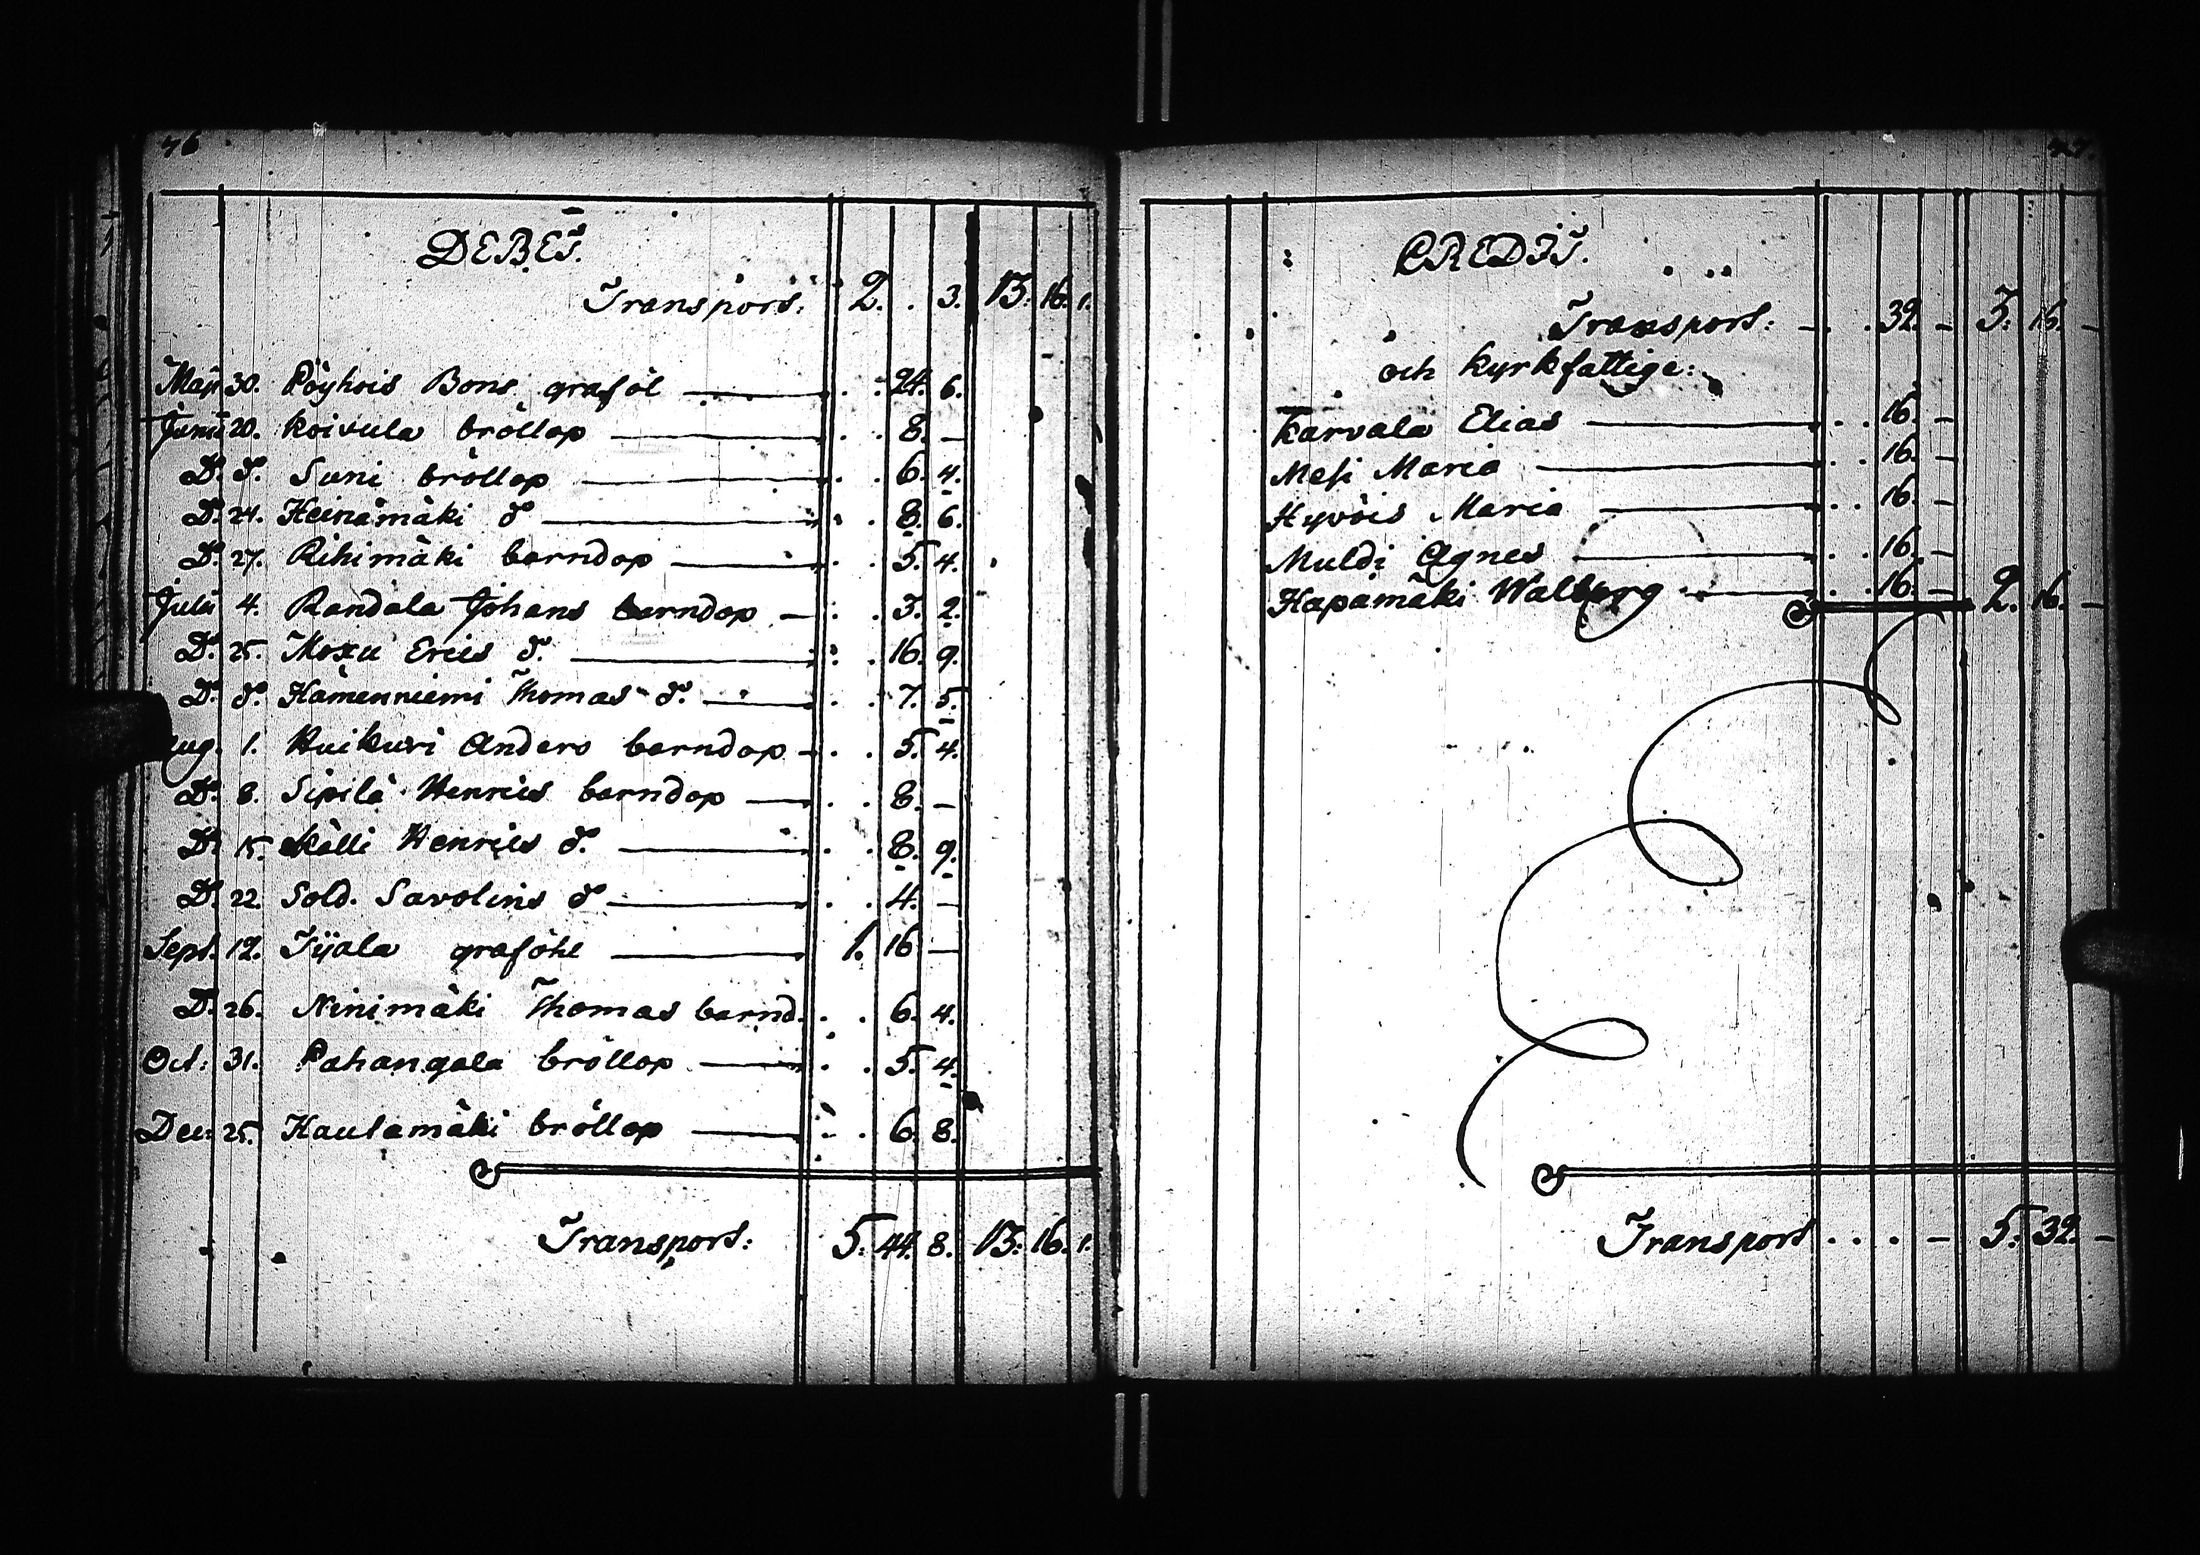 76
DEBET.
Transport: 2. . 3. 13. 16. 1.
Maji 30. Pöyhöis Bons graföl — . . 24. 6.
Junii 20. Koivula bröllop — . . 8. —
D:o d:o Suni bröllop — . . 6. 4.
D:o 24. Heinämäki d:o — . . 8. 6.
D:o 27. Rihimäki barndop — . . 5. 4.
Julii 4. Randala Johans barndop — . . 3. 2.
D:o 25. Moxu Erics d:o — . . 16. 9.
D:o d:o Hämenniemi Thomas d:o — . . 7. 5.
Aug. 1. Huikuri Anders barndop — . . 5. 4.
D:o 8. Sipilä Henrics barndop — . . 8. —
D:o 15. Källi Henrics d:o — . . 8. 9.
D:o 22. Sold. Savolins d:o — . . 4. —
Sept. 12. Tijala graföhl — 1. 16 —
D:o 26. Ninimäki Thomas barnd. . . 6. 4.
Oct: 31. Pahangala bröllop — . . 5. 4.
Dec: 25. Hautamäki bröllop — . . 6. 8.
Transport: 5. 44. 8. 13. 16. 1.
CREDIT.
Transport: — . . 32. — 3. 16. —
och kyrkfattige:
Karvala Elias — . . 16. —
Mesi Maria — . . 16. —
Hyvöis Maria — . . 16. —
Muldi Agnes — . . 16. —
Hapamäki Walborg — . . 16. — 2. 16. —
Transport . . . — 5. 32. —